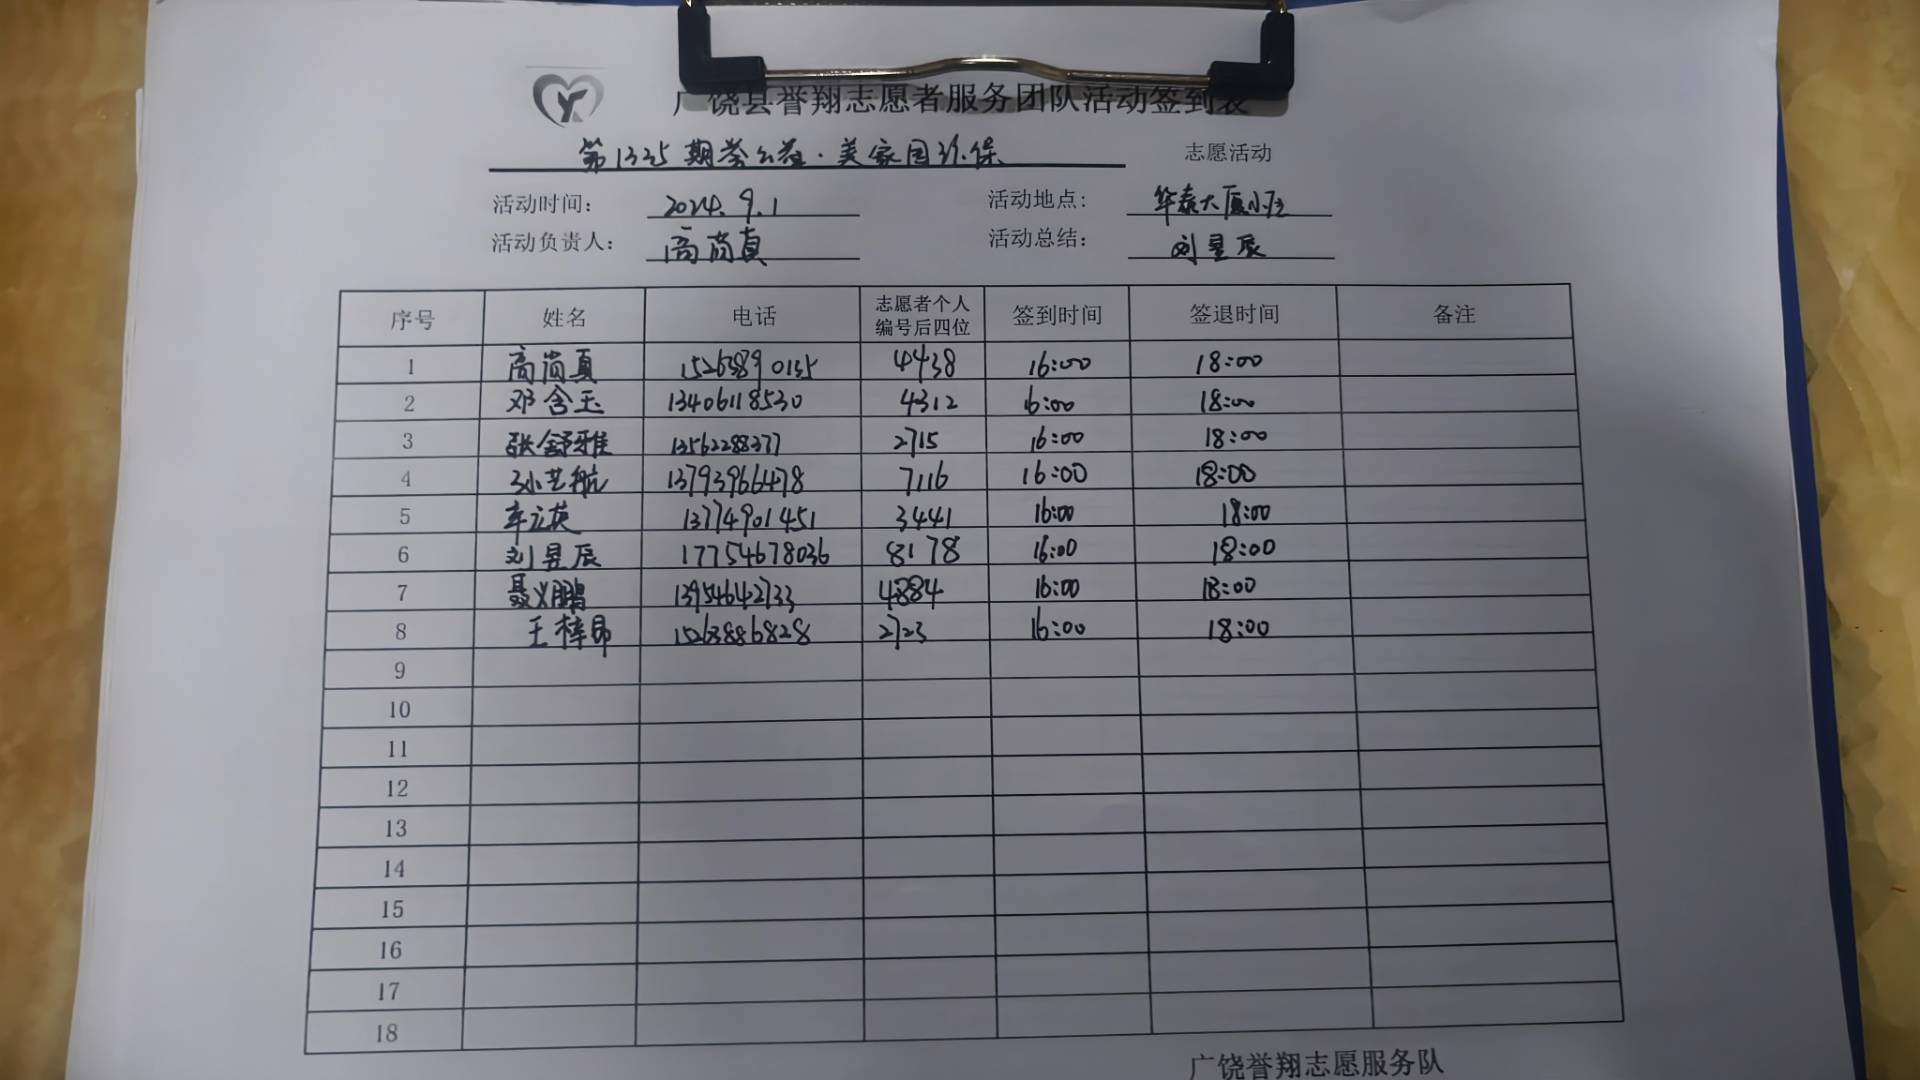 广饶县誉翔志愿者服务团队活动签到表
第1335期 公益·美家园环保 志愿活动
活动时间： 2024.9.1 活动地点： 华泰大厦小区
活动负责人： 高尚真 活动总结： 刘昱辰
序号 姓名 电话 志愿者个人编号后四位 签到时间 签退时间 备注
1 高尚真 15263890135 4438 16:00 18:00
2 邓含玉 13406118530 4312 16:00 18:00
3 张舒雅 13562288377 2715 16:00 18:00
4 孙艺航 13793966478 7116 16:00 18:00
5 13774901451 3441 16:00 18:00
6 刘昱辰 17754678036 8178 16:00 18:00
7 聂义鹏 13954642733 4884 16:00 18:00
8 王梓昂 15263886828 2723 16:00 18:00
9
10
11
12
13
14
15
16
17
18
广饶誉翔志愿服务队